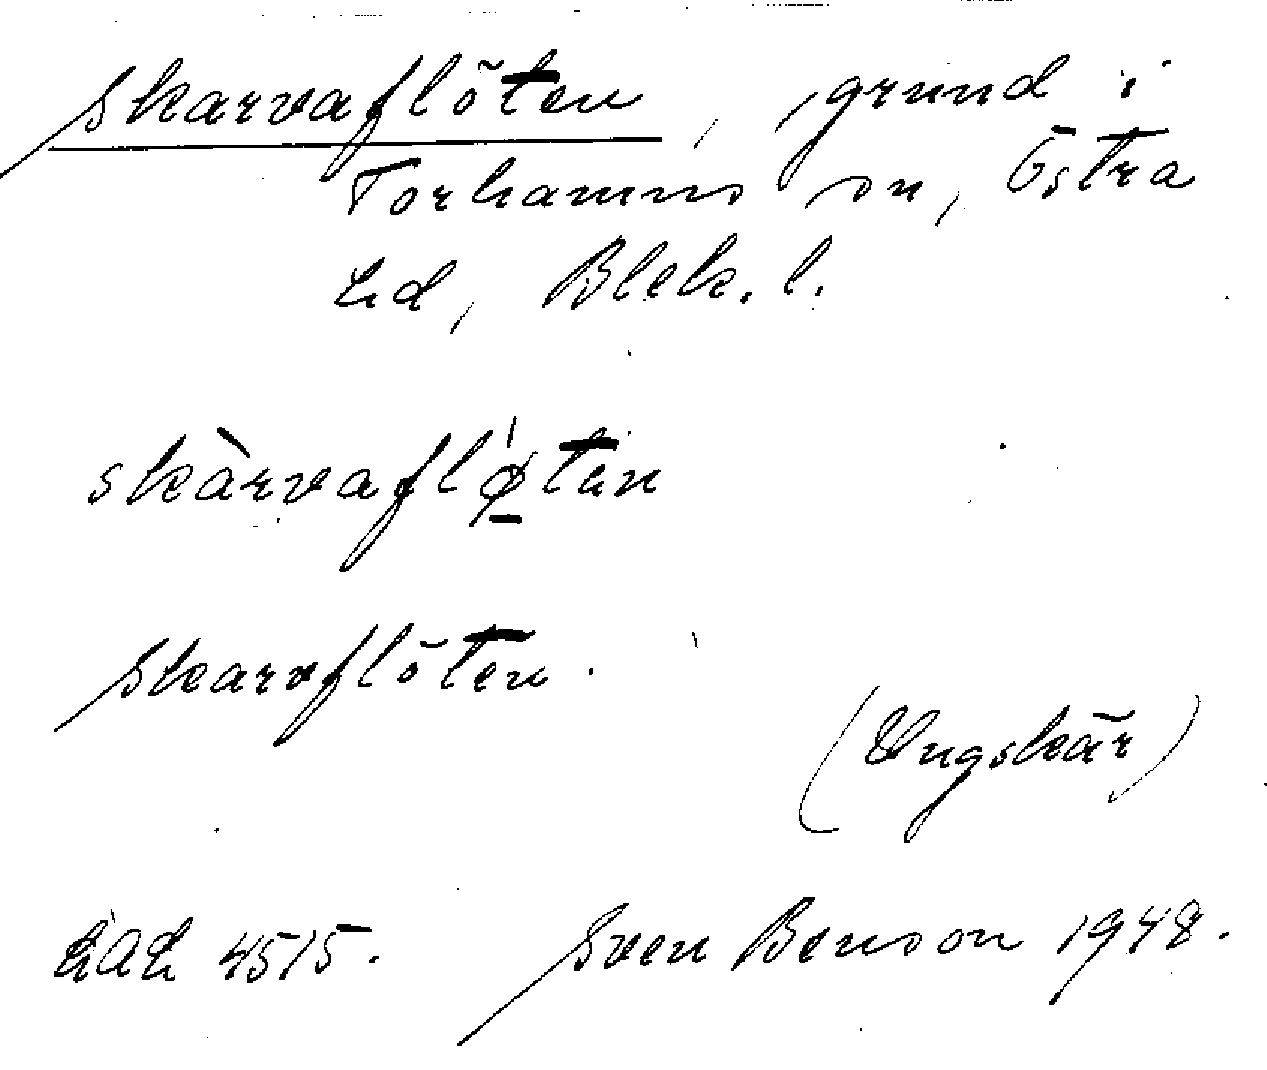 Skarvaflöten, grund i
Torhamns sn, Östra
hd, Blek. l.
skàrvaflǿ̱tən
Skarvflöten.
(Ungskär)
LAL 4515. Sven Benson 1948.